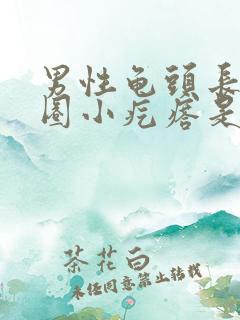 男性龟頭長
圈小疙瘩是
茶花白
未经同意禁止转载